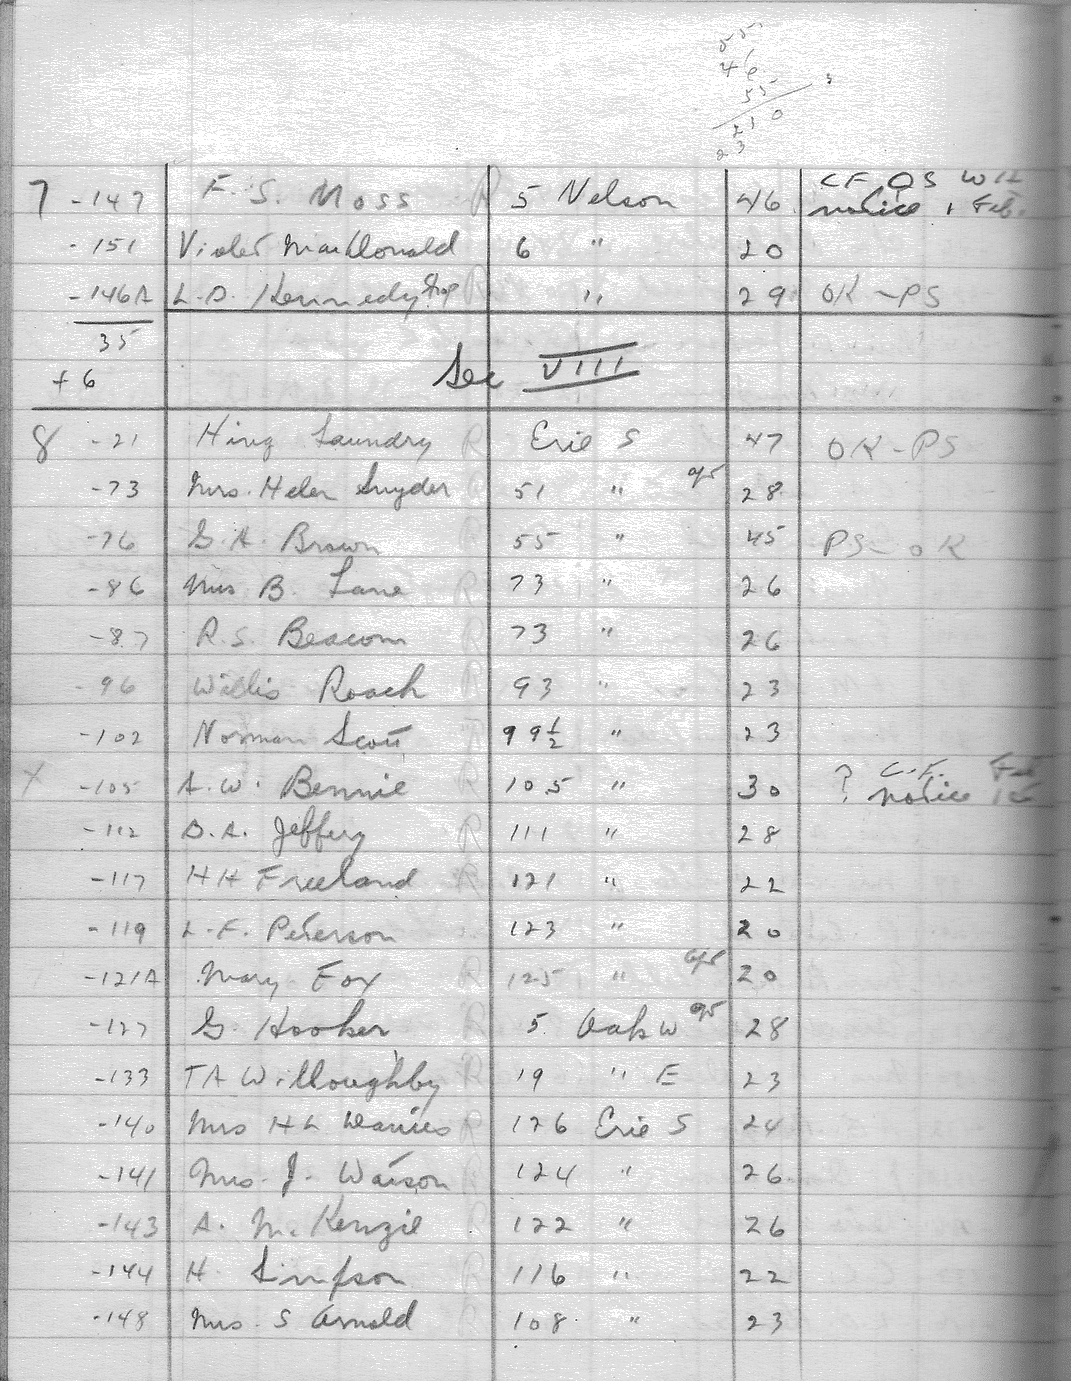 55
46
55
210
23
7 -147 F. S. Moss R 5 Nelson 46 CF OS
notice Feb.
-151 Violet MacDonald 6 " 20
-146A L.D. Kennedy " 29 OK-PS
35
+6
Sec VIII
8 -21 Hing Laundry R Erie S 47 OK-PS
-73 Mrs. Helen Snyder R 51 " apt 28
-76 G.A. Brown 55 " 45 PS-OK
-86 Mrs B. Lane R 73 " 26
-87 R.S. Beacom R 73 " 26
-96 Willis Roach R 93 " 23
-102 Norman Scott R 99½ " 23
X -105 A.W. Bennie 105 " 30 ? C.F. Feb
notice
-112 D.A. Jeffery R 111 " 28
-117 HH Freeland R 121 " 22
-119 L.F. Peterson 123 " 20
-121A Mary Fox R 125 " apt 20
-127 G. Hooker R 5 Oak W apt 28
-133 TA Willoughby R 19 " E 23
-140 Mrs HL R 126 Erie S 24
-141 Mrs. J. Watson R 124 " 26
-143 A. McKenzie R 122 " 26
-144 H Simpson R 116 " 22
-148 Mrs. S Arnold R 108 " 23